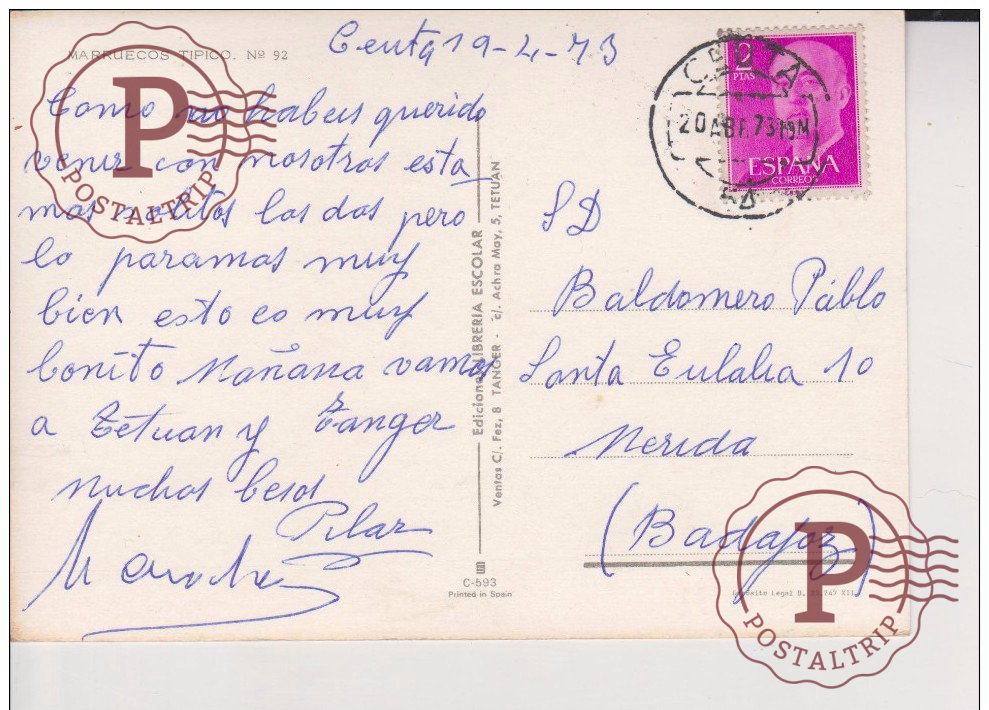 MARRUECOS TIPICO. Nº 92
Ceuta 19-4-73
Como no habeis querido
venir con nosotros esta
mos solitos los dos pero
lo paramos muy
bien esto es muy
bonito Mañana vamos
a Tetuan y Tanger
muchos besos
Pilar
Ediciones LIBRERIA ESCOLAR
Ventas C/. Fez, 8 TANGER - c/. Achra May, 5, TETUAN
C-593
Printed in Spain
CEUTA
20 ABR. 73 19M
2
PTAS
ESPAÑA
CORREOS
SD
Baldomero Pablo
Santa Eulalia 10
Merida
(Badajoz)
Deposito Legal B.
XII
P
POSTALTRIP
P
POSTALTRIP